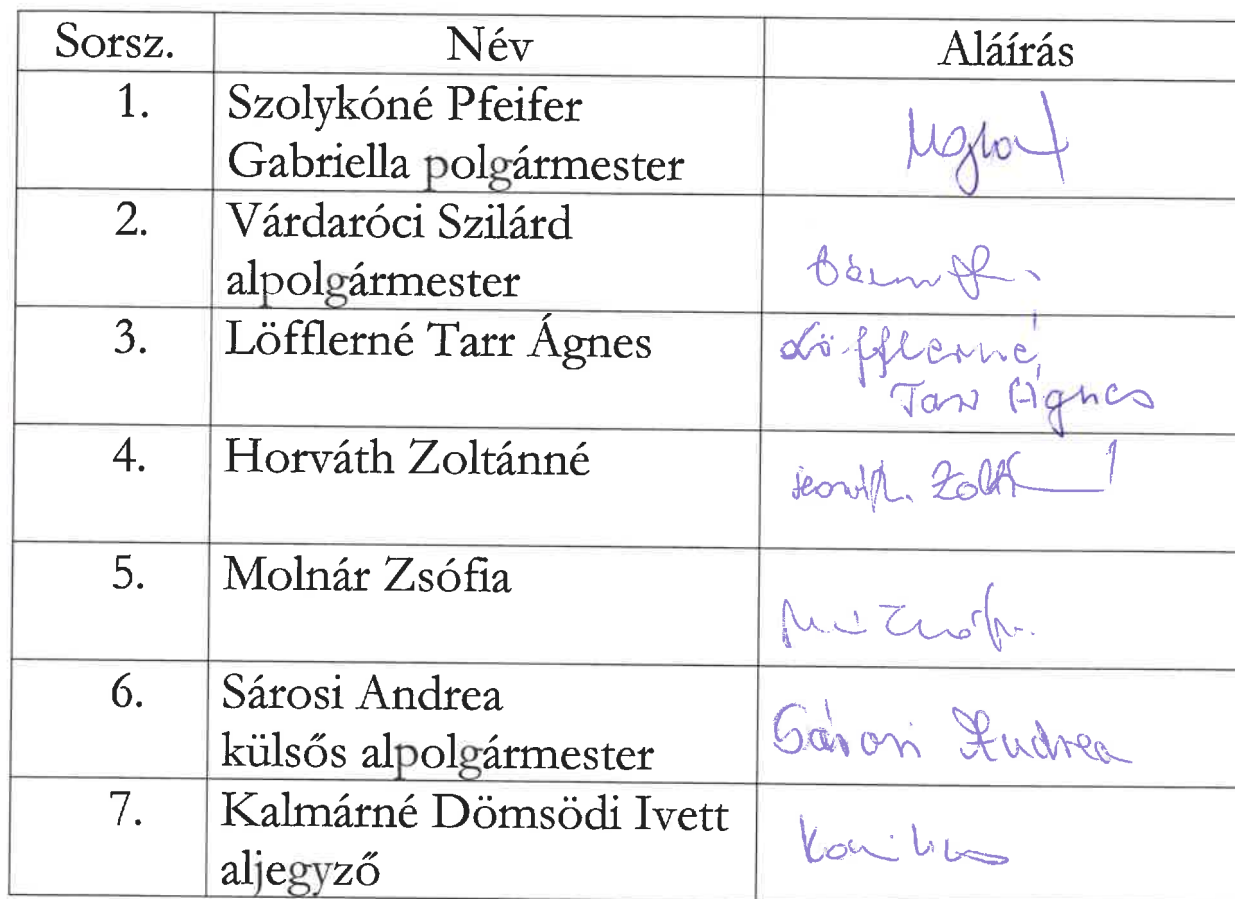 Sorsz. Név Aláírás
1. Szolykóné Pfeifer
Gabriella polgármester
2. Várdaróci Szilárd
alpolgármester
3. Löfflerné Tarr Ágnes Löfflerné
Tarr Ágnes
4. Horváth Zoltánné
5. Molnár Zsófia
6. Sárosi Andrea Sárosi Andrea
külsős alpolgármester
7. Kalmárné Dömsödi Ivett
aljegyző